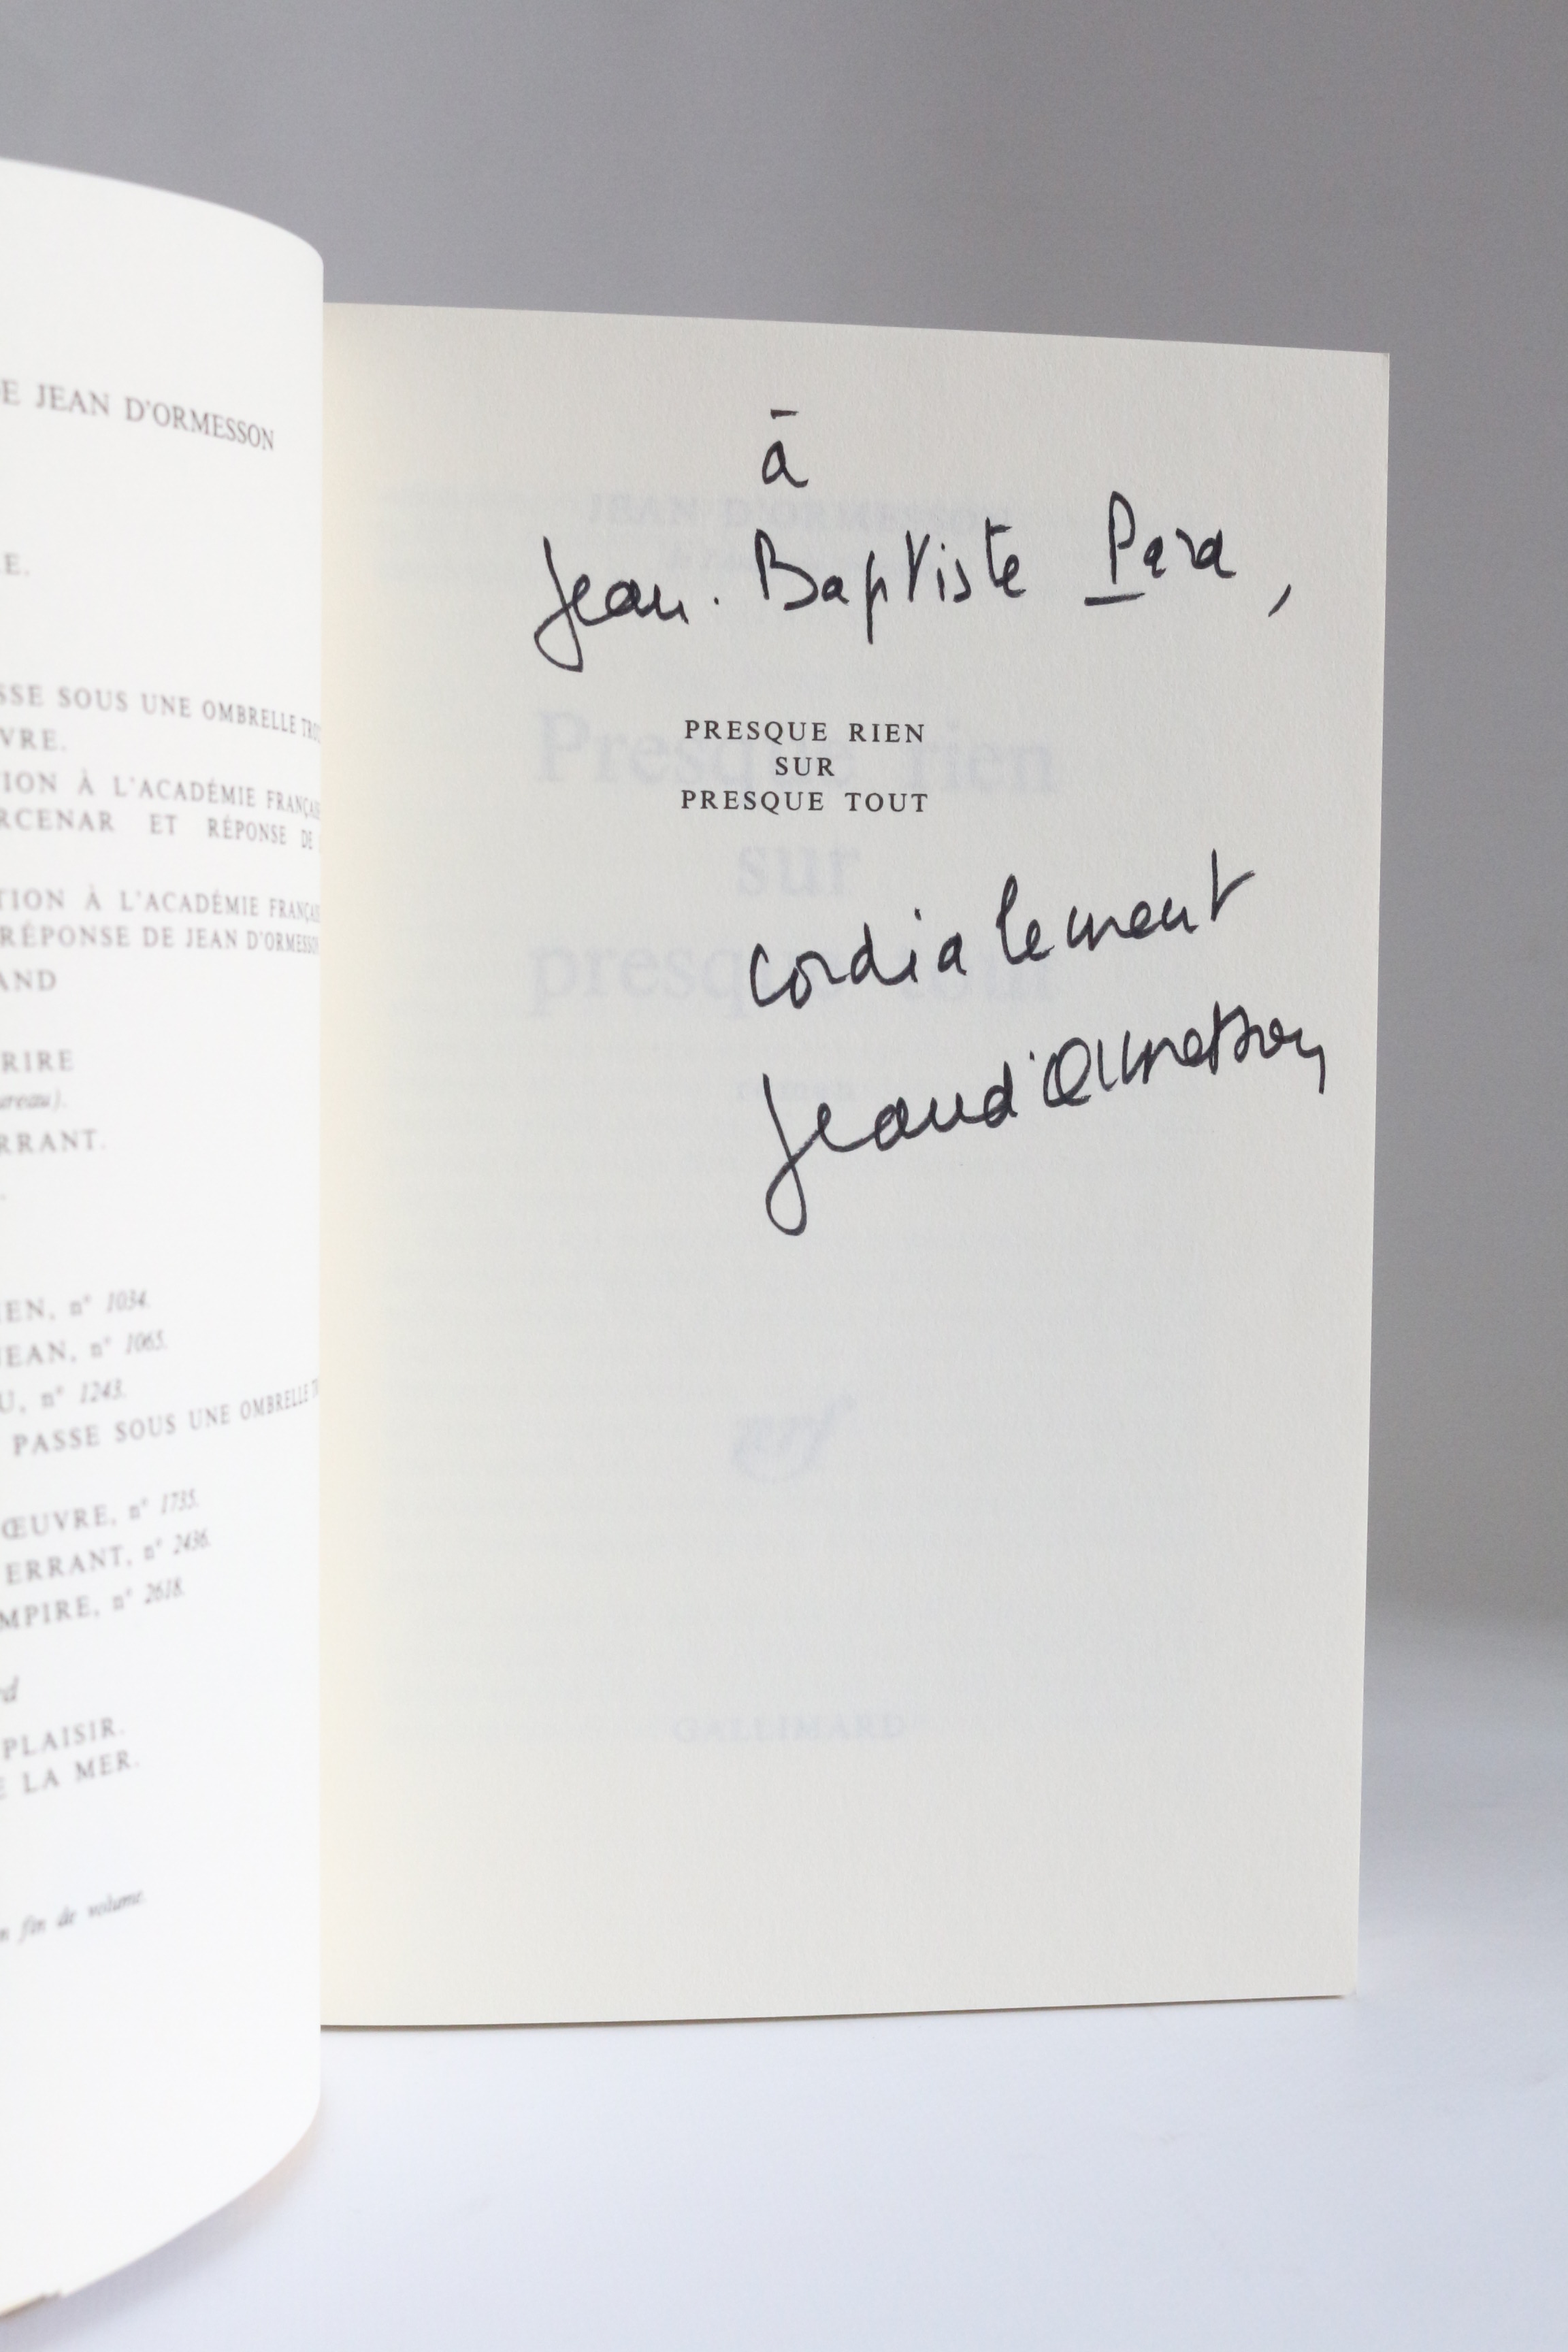 E JEAN D'ORMESSON
E.
SSE SOUS UNE OMBRELLE
VRE.
ION À L'ACADÉMIE FRANÇAIS
RCENAR ET RÉPONSE DE
TION À L'ACADÉMIE FRANÇAIS
RÉPONSE DE JEAN D'ORMESSON
AND
RIRE
ureau).
RRANT.
IEN, n° 1034.
JEAN, n° 1065.
U, n° 1243.
PASSE SOUS UNE OMBRELLE
ŒUVRE, n° 1735.
ERRANT, n° 2436.
MPIRE, n° 2618.
rd
PLAISIR.
E LA MER.
n fin de volume.
à
Jean-Baptiste Para,
PRESQUE RIEN
SUR
PRESQUE TOUT
cordialement
Jean d'Ormesson
JEAN D'ORMESSON
Presque rien
sur
presque tout
roman
nrf
GALLIMARD